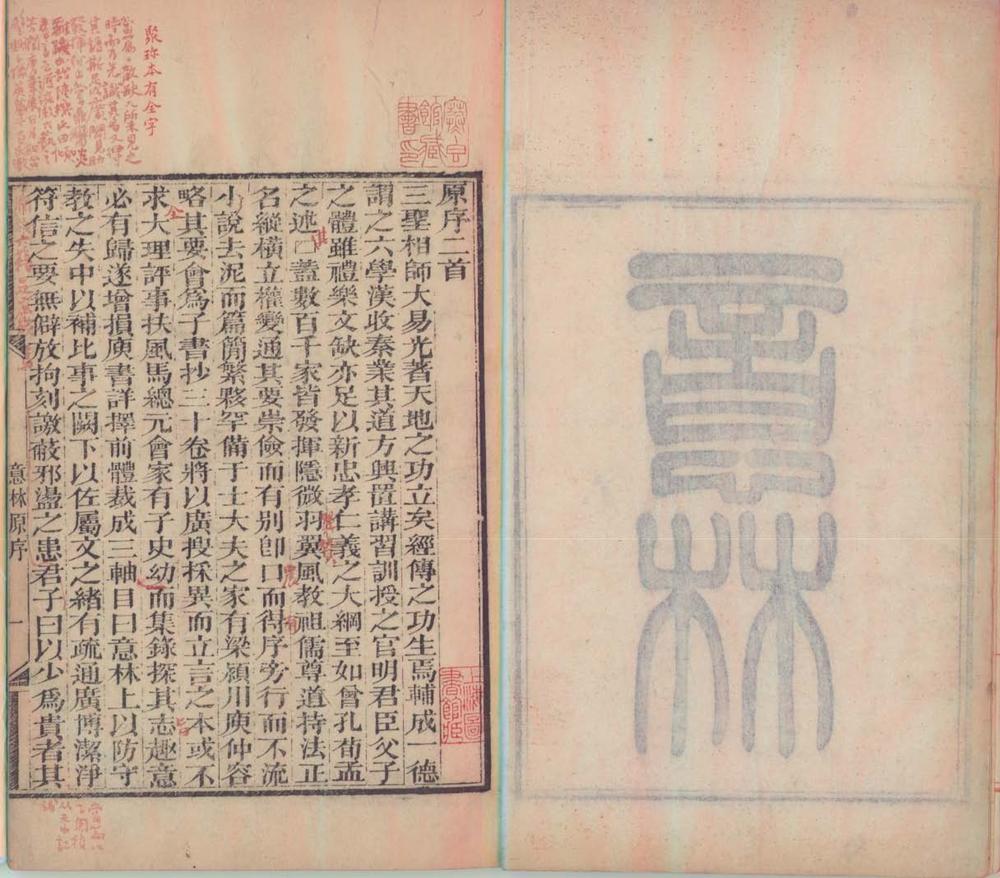 意林
原序二首
三聖相師大易光著天地之功立矣經傳之功生焉輔成一德
謂之六學漢收秦業其道方興置講習訓授之官明君臣父子
之體雖禮樂文缺亦足以新忠孝仁義之大綱至如曾孔荀孟
之述□蓋數百千家皆發揮隱微羽翼風教祖儒尊道持法正
名縱橫立權變通其要崇儉而有別卽口而得序旁行而不流
小說去泥而篇簡繁夥罕備于士大夫之家有梁潁川庾仲容
略其要會爲子書抄三十卷將以廣搜採異而立言之本或不
求大理評事扶風馬總元會家有子史幼而集錄探其志趣意
必有歸遂增損庾書詳擇前體裁成三軸目曰意林上以防守
教之失中以補比事之闕下以佐屬文之緒有疏通廣博潔淨
符信之要無僻放拘刻譏蔽邪蕩之患君子曰以少爲貴者其
意林原序
一
聚珍本有全字
上海圖書館藏